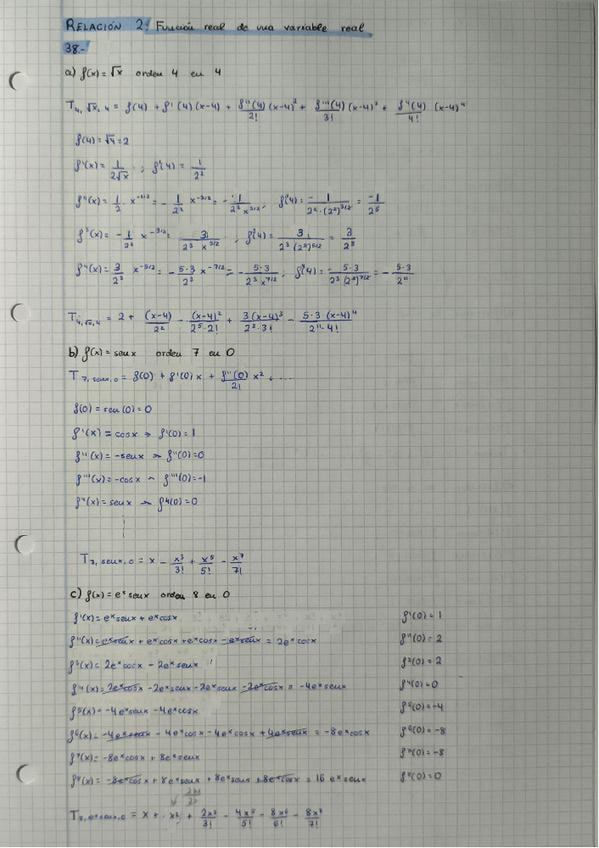 RELACIÓN 2: Función real de una variable real
38.-
a) f(x) = √x orden 4 en 4
T₄,√x,₄ = f(4) + f'(4)(x-4) + f''(4)/2! (x-4)² + f'''(4)/3! (x-4)³ + f⁴(4)/4! (x-4)⁴
f(4) = √4 = 2
f'(x) = 1/(2√x) ; f'(4) = 1/2²
f''(x) = 1/2 x^(-3/2) = -1/2² x^(-3/2) = -1/(2² x^(3/2)), f''(4) = -1/(2²·(2²)^(3/2)) = -1/2⁵
f³(x) = -1/2² x^(-3/2) = 3/(2³ x^(5/2)) ; f³(4) = 3/(2³(2²)^(5/2)) = 3/2⁸
f⁴(x) = 3/2³ x^(-5/2) = -5·3/2³ x^(-7/2) = -5·3/(2³ x^(7/2)) ; f⁴(4) = -5·3/(2³(2²)^(7/2)) = -5·3/2¹¹
T₄,√x,₄ = 2 + (x-4)/2² - (x-4)²/(2⁵·2!) + 3(x-4)³/(2⁸·3!) - 5·3(x-4)⁴/(2¹¹·4!)
b) f(x) = senx orden 7 en 0
T₇,senx,₀ = f(0) + f'(0)x + f''(0)/2! x² + ....
f(0) = sen(0) = 0
f'(x) = cosx → f'(0) = 1
f''(x) = -senx → f''(0) = 0
f'''(x) = -cosx → f'''(0) = -1
f⁴(x) = senx → f⁴(0) = 0
T₇,senx,₀ = x - x³/3! + x⁵/5! - x⁷/7!
c) f(x) = eˣ senx orden 8 en 0
f'(x) = eˣ senx + eˣ cosx f'(0) = 1
f''(x) = eˣ senx + eˣ cosx + eˣ cosx - eˣ senx = 2eˣ cosx f''(0) = 2
f³(x) = 2eˣ cosx - 2eˣ senx f³(0) = 2
f⁴(x) = 2eˣ cosx - 2eˣ senx - 2eˣ senx - 2eˣ cosx = -4eˣ senx f⁴(0) = 0
f⁵(x) = -4eˣ senx - 4eˣ cosx f⁵(0) = -4
f⁶(x) = -4eˣ senx - 4eˣ cosx - 4eˣ cosx + 4eˣ senx = -8eˣ cosx f⁶(0) = -8
f⁷(x) = -8eˣ cosx + 8eˣ senx f⁷(0) = -8
f⁸(x) = -8eˣ cosx + 8eˣ senx + 8eˣ senx + 8eˣ cosx = 16 eˣ senx f⁸(0) = 0
T₈,eˣsenx,₀ = x + x² + 2x³/3! - 4x⁵/5! - 8x⁶/6! - 8x⁷/7!